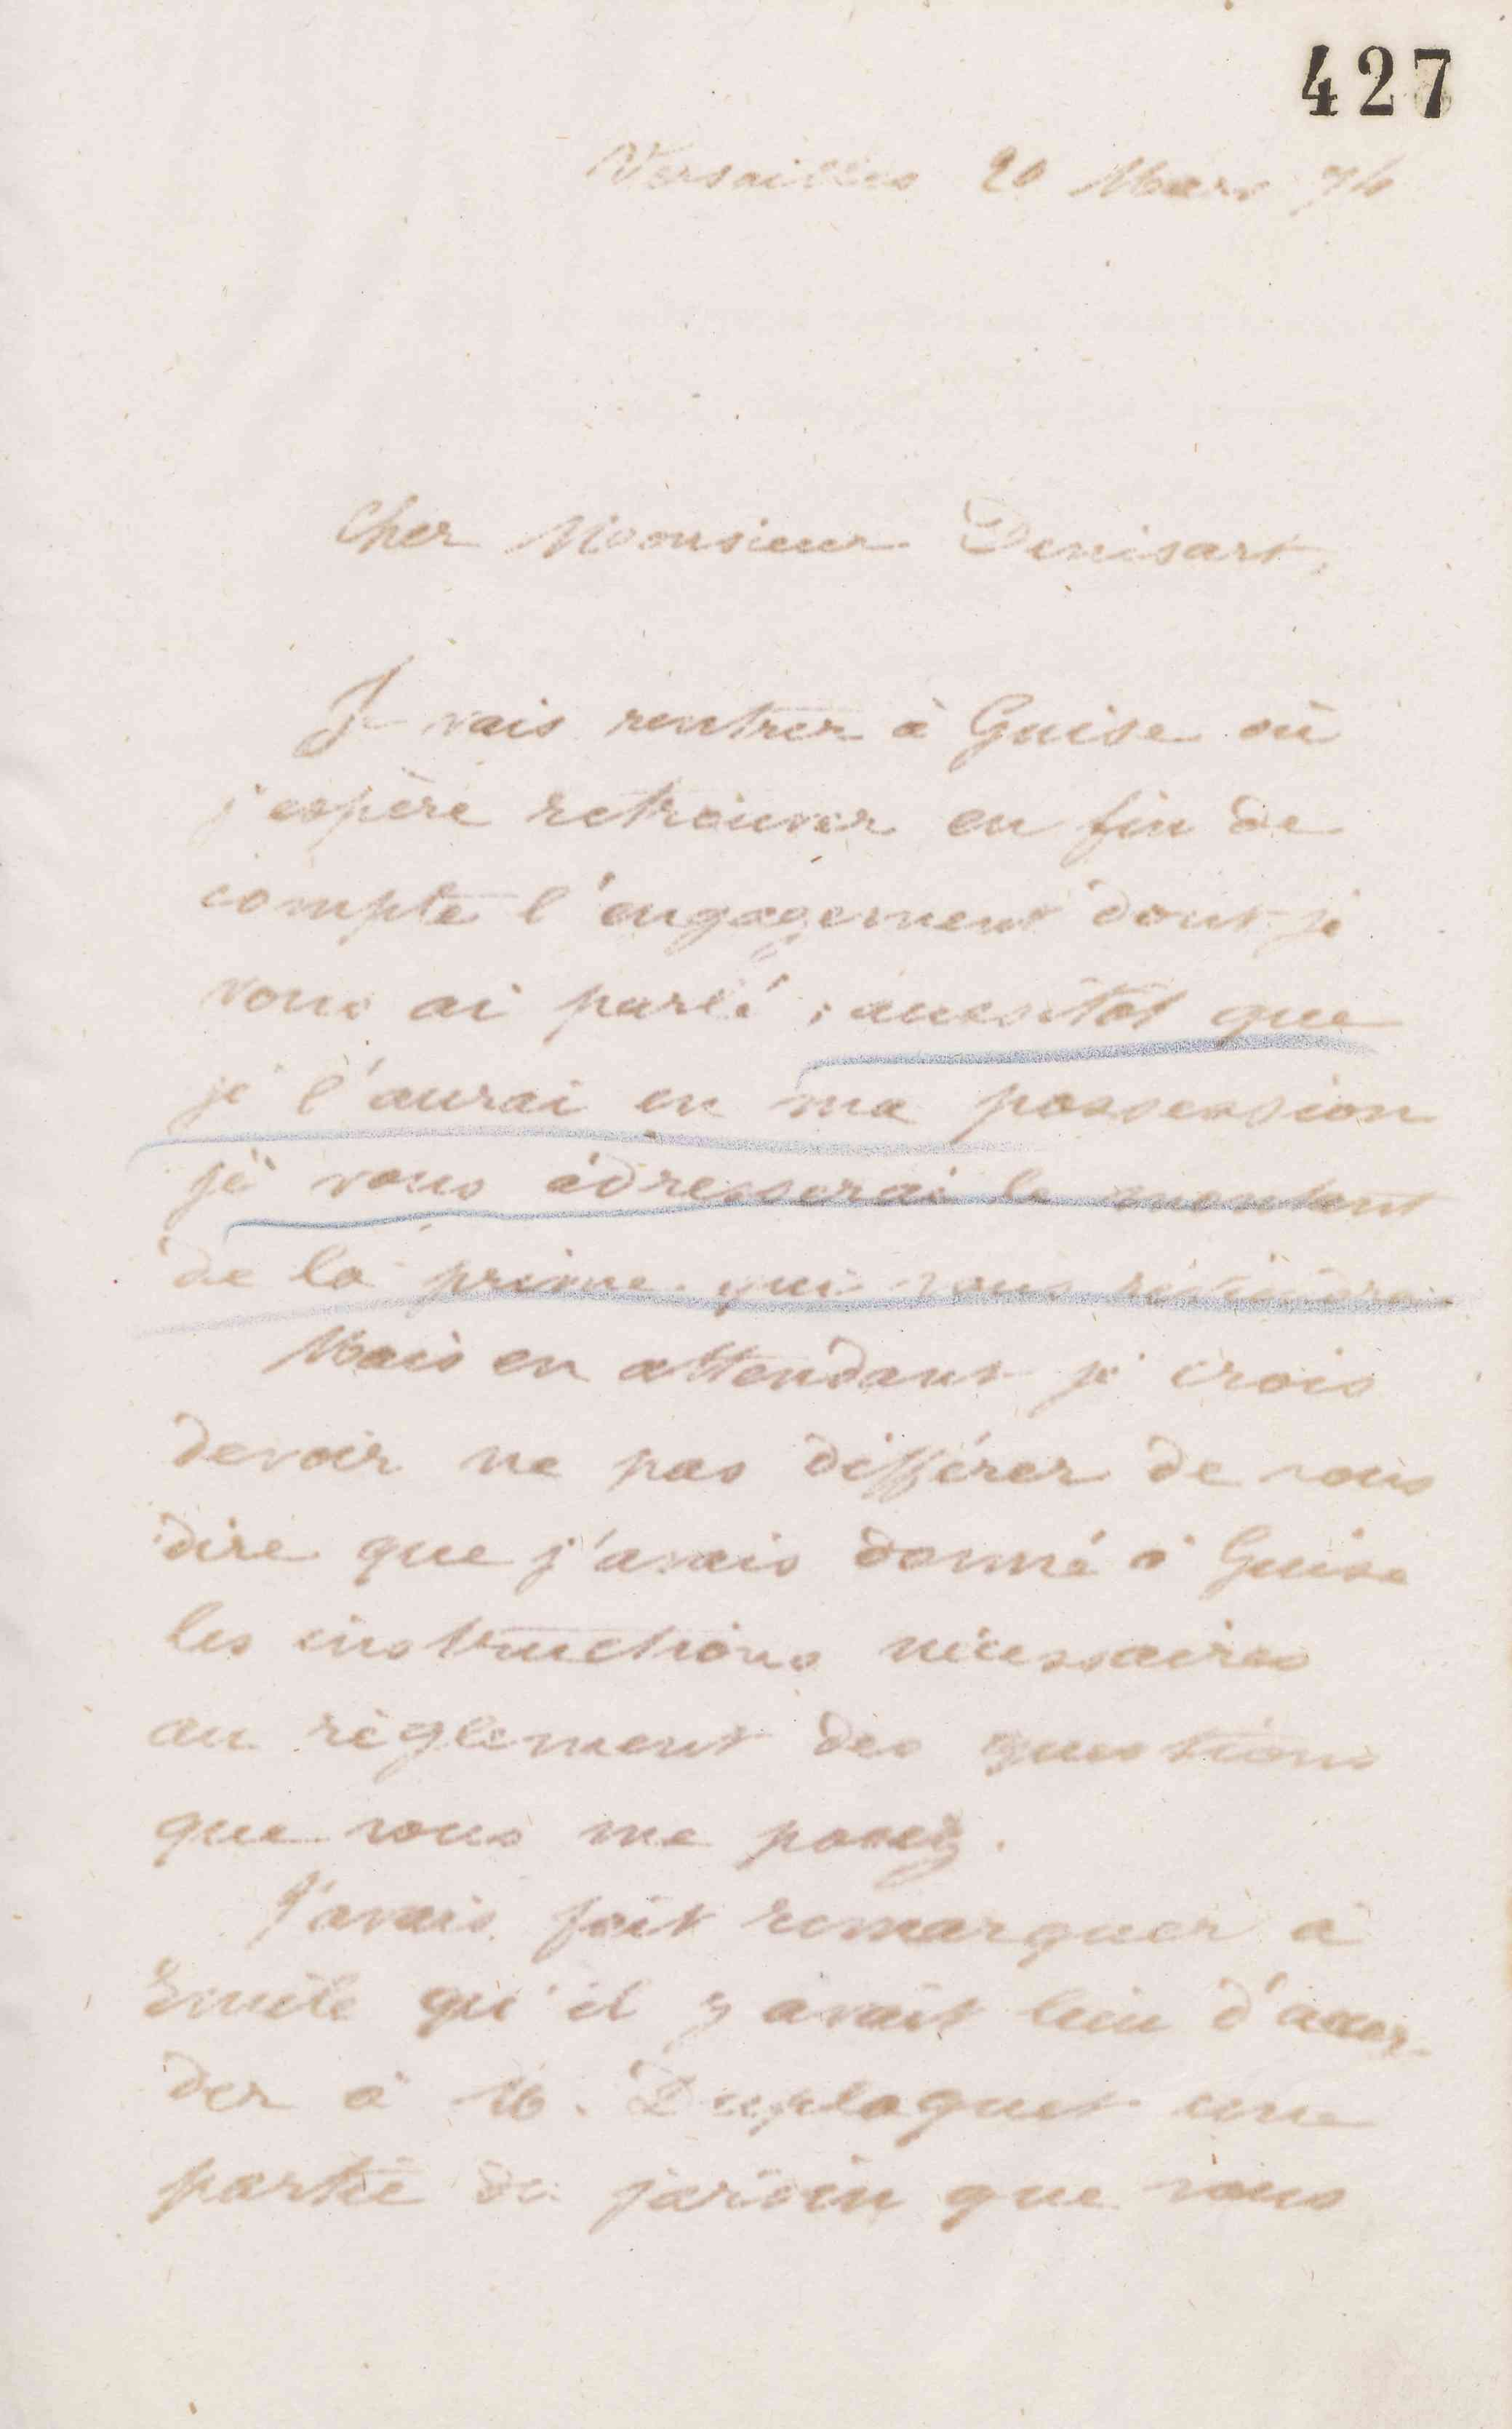 427
Versailles 20 Mars 74
Cher Monsieur Denisart,
Je vais rentrer à Guise où
j'espère retrouver en fin de
compte l'engagement dont je
vous ai parlé ; aussitôt que
je l'aurai en ma possession
je vous adresserai le montant
de la prime qui vous
Mais en attendant je crois
devoir ne pas différer de vous
dire que j'avais donné à Guise
les instructions nécessaires
au règlement des questions
que vous me posez.
J'avais fait remarquer à
Emile qu'il y avait lieu d'accor-
der à M. Duplaquet une
partie du jardin que vous